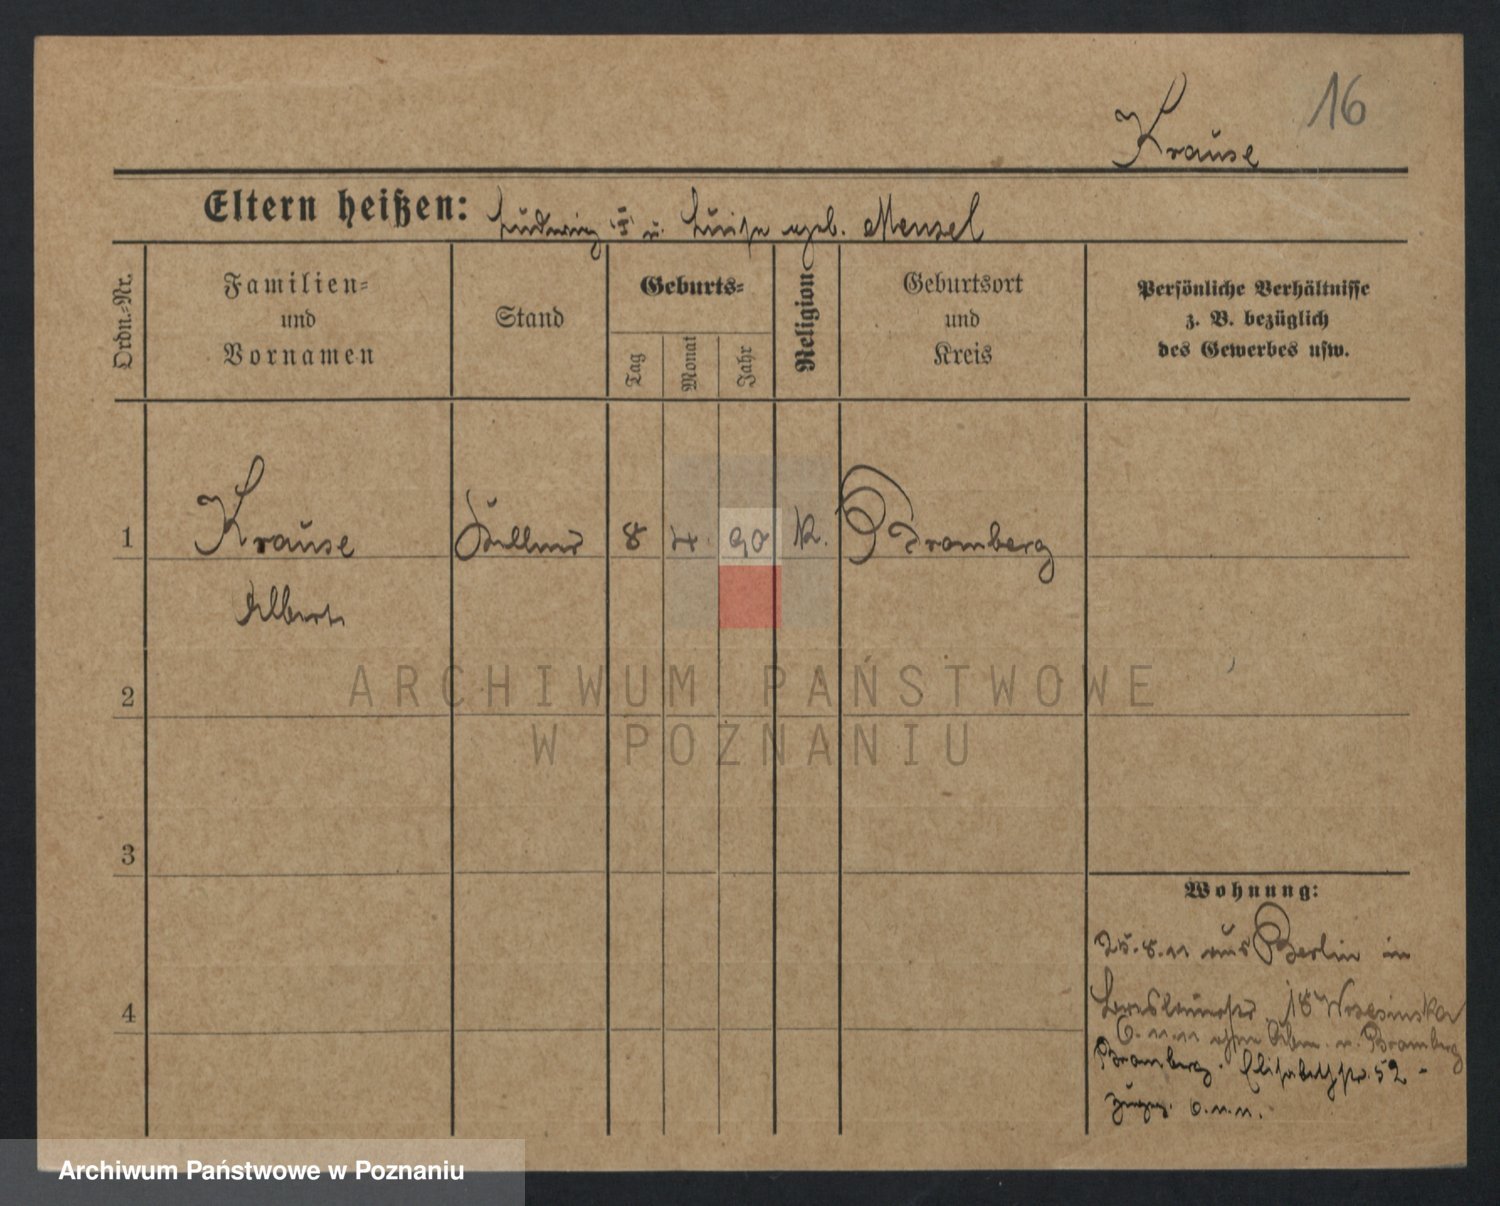 16
Krause
Eltern heißen: Ludwig † u. Luise geb. Mensel
Ordn.-Nr.
Familien-
und
Vornamen
Stand
Geburts-
Tag
Monat
Jahr
Religion
Geburtsort
und
Kreis
Persönliche Verhältnisse
z. B. bezüglich
des Gewerbes usw.
1
Krause
Kellner
8
4
90
K.
Bromberg
Albert
2
3
4
Wohnung:
25.8.11 aus Berlin in
18 Wrzesinska
6.11.11 ohne Abm. n. Bromberg
Bromberg. Elisabethstr. 52 -
6.11.11.
ARCHIWUM PAŃSTWOWE
W POZNANIU
Archiwum Państwowe w Poznaniu